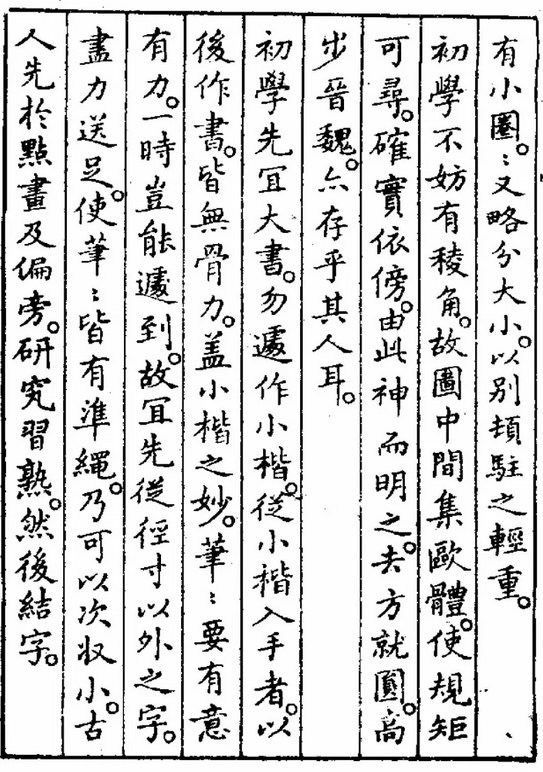 有小圈。〻又略分大小。以别頓駐之輕重。
初學不妨有稜角。故圖中間集歐體。使規矩
可尋。確實依傍。由此神而明之。去方就圓。高
步晉魏。亦存乎其人耳。
初學先宜大書。勿遽作小楷。從小楷入手者。以
後作書。皆無骨力。盖小楷之妙。筆〻要有意
有力。一時豈能遽到。故宜先從徑寸以外之字。
盡力送足。使筆〻皆有準繩。乃可以次收小。古
人先於點畫及偏旁。研究習熟。然後結字。